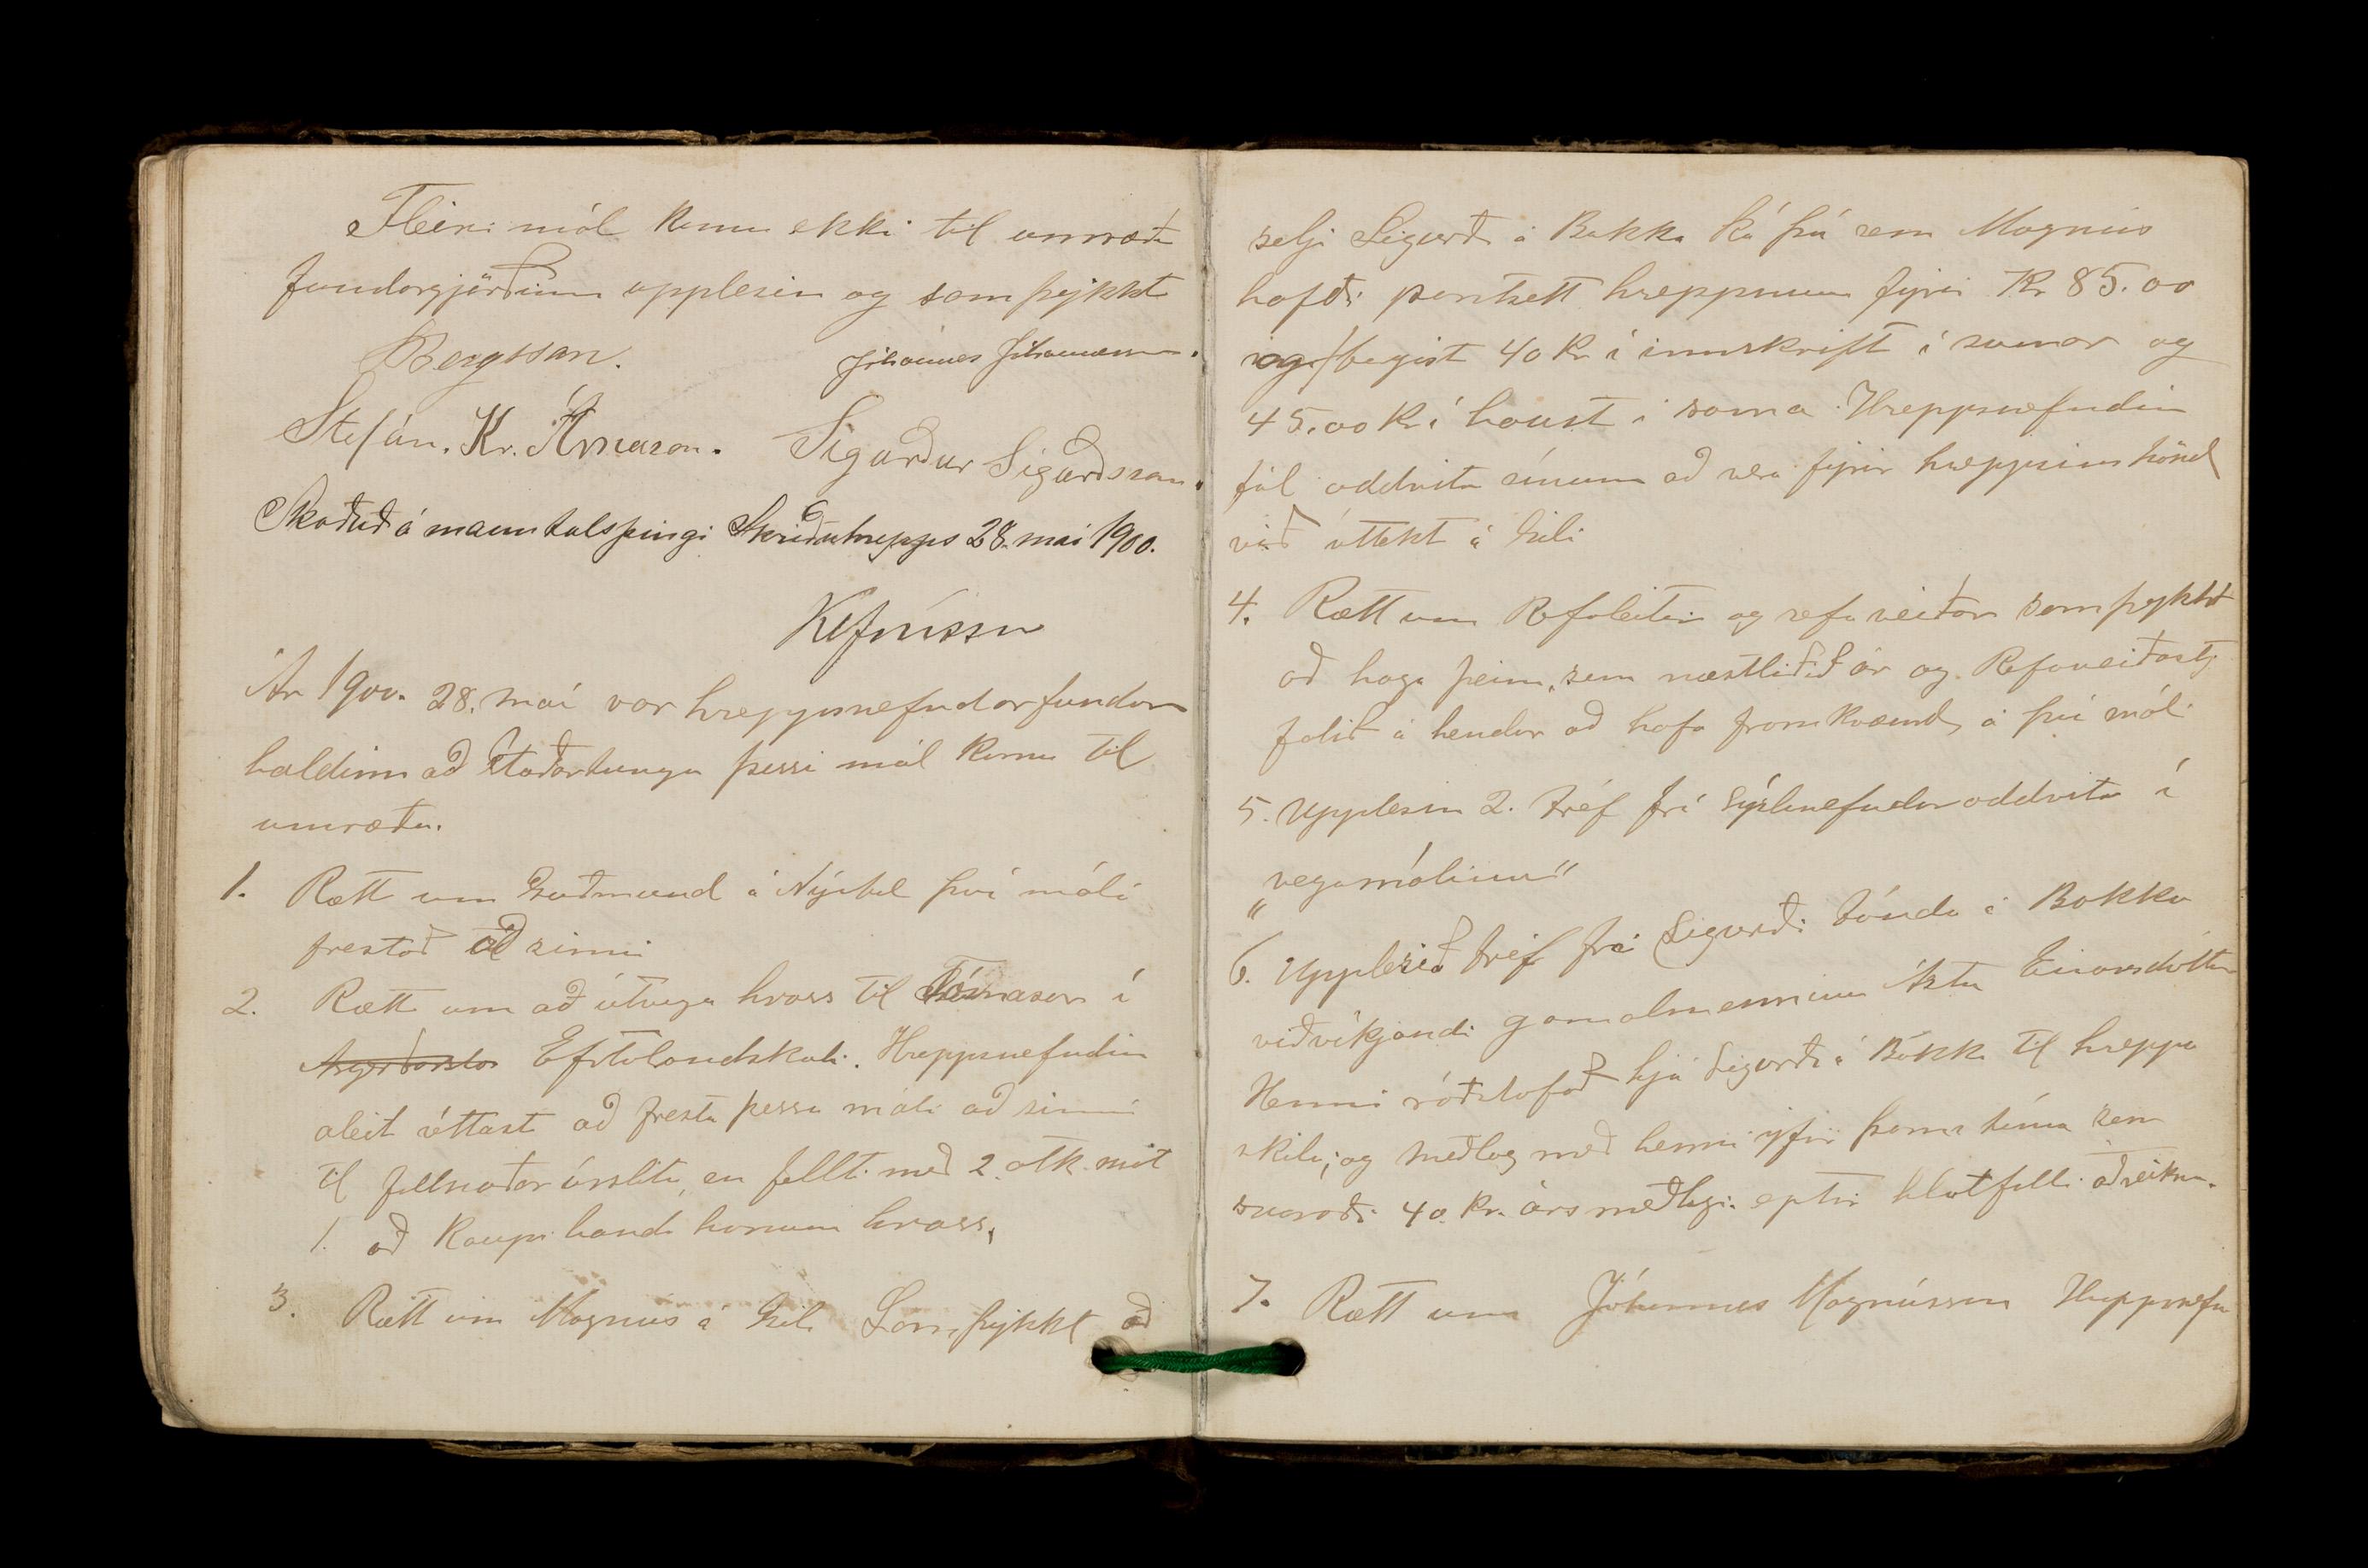 Fleiri mál komu ekki til umræðu
fundargjörðinn upplesin og samþykkt
Bergsson. Jóhannes Jóhannesson.
Stefán. Kr. Árnason. Sigurður Sigurðsson.
Skoðuð á manntalsþingi Skriðuhrepps 28. mai 1900.
Ár 1900. 28. maí var hreppsnefndarfundur
haldinn að Staðartungu þessi mál komu til
umræðu.
1. Rætt um Guðmund á Nýabæ því máli
frestað að sinni
2. Rætt um að útvega hross til Tómasar í
Efstalandskoti. Hreppsnefndin
aleit réttast að fresta þessu máli að sinni
til fullnaðar úrslita, en fellt með 2. atk. mót
1. að kaupa handa honum hross,
3. Rætt um Magnús á Gili Samþykkt að
selja Sigurði á Bakka kú þá sem Magnús
hafði pantsett hreppnum fyrir Kr 85.00
og borgist 40 Kr í innskrift í sumar og
45.00 Kr í haust í sama. Hreppsnefndin
fól oddvita sínum að vera fyrir hreppsins hönd
við úttekt á Gili
4. Rætt um Refaleitir og refaveiðar samþykkt
að haga þeim, sem næstliðið ár og Refaveiðastj
falið á hendur að hafa framkvæmd, á því máli
5. Upplesin 2. bréf frá Sýslunefndaroddvita í
„vegamálinu"
6. Upplesið bréf frá Sigurði bónda á Bakka
viðvíkjandi gamalmenninu Ástu Einarsdóttur
Henni ráðstafað hjá Sigurði á Bakka til hreppa
skila; og meðlag með henni yfir þann tíma sem
svaraði 40. Kr. ársmeðlagi eptir hlutfalli aðreikn.
7. Rætt um Jóhannes Magnússon Hreppsnefn